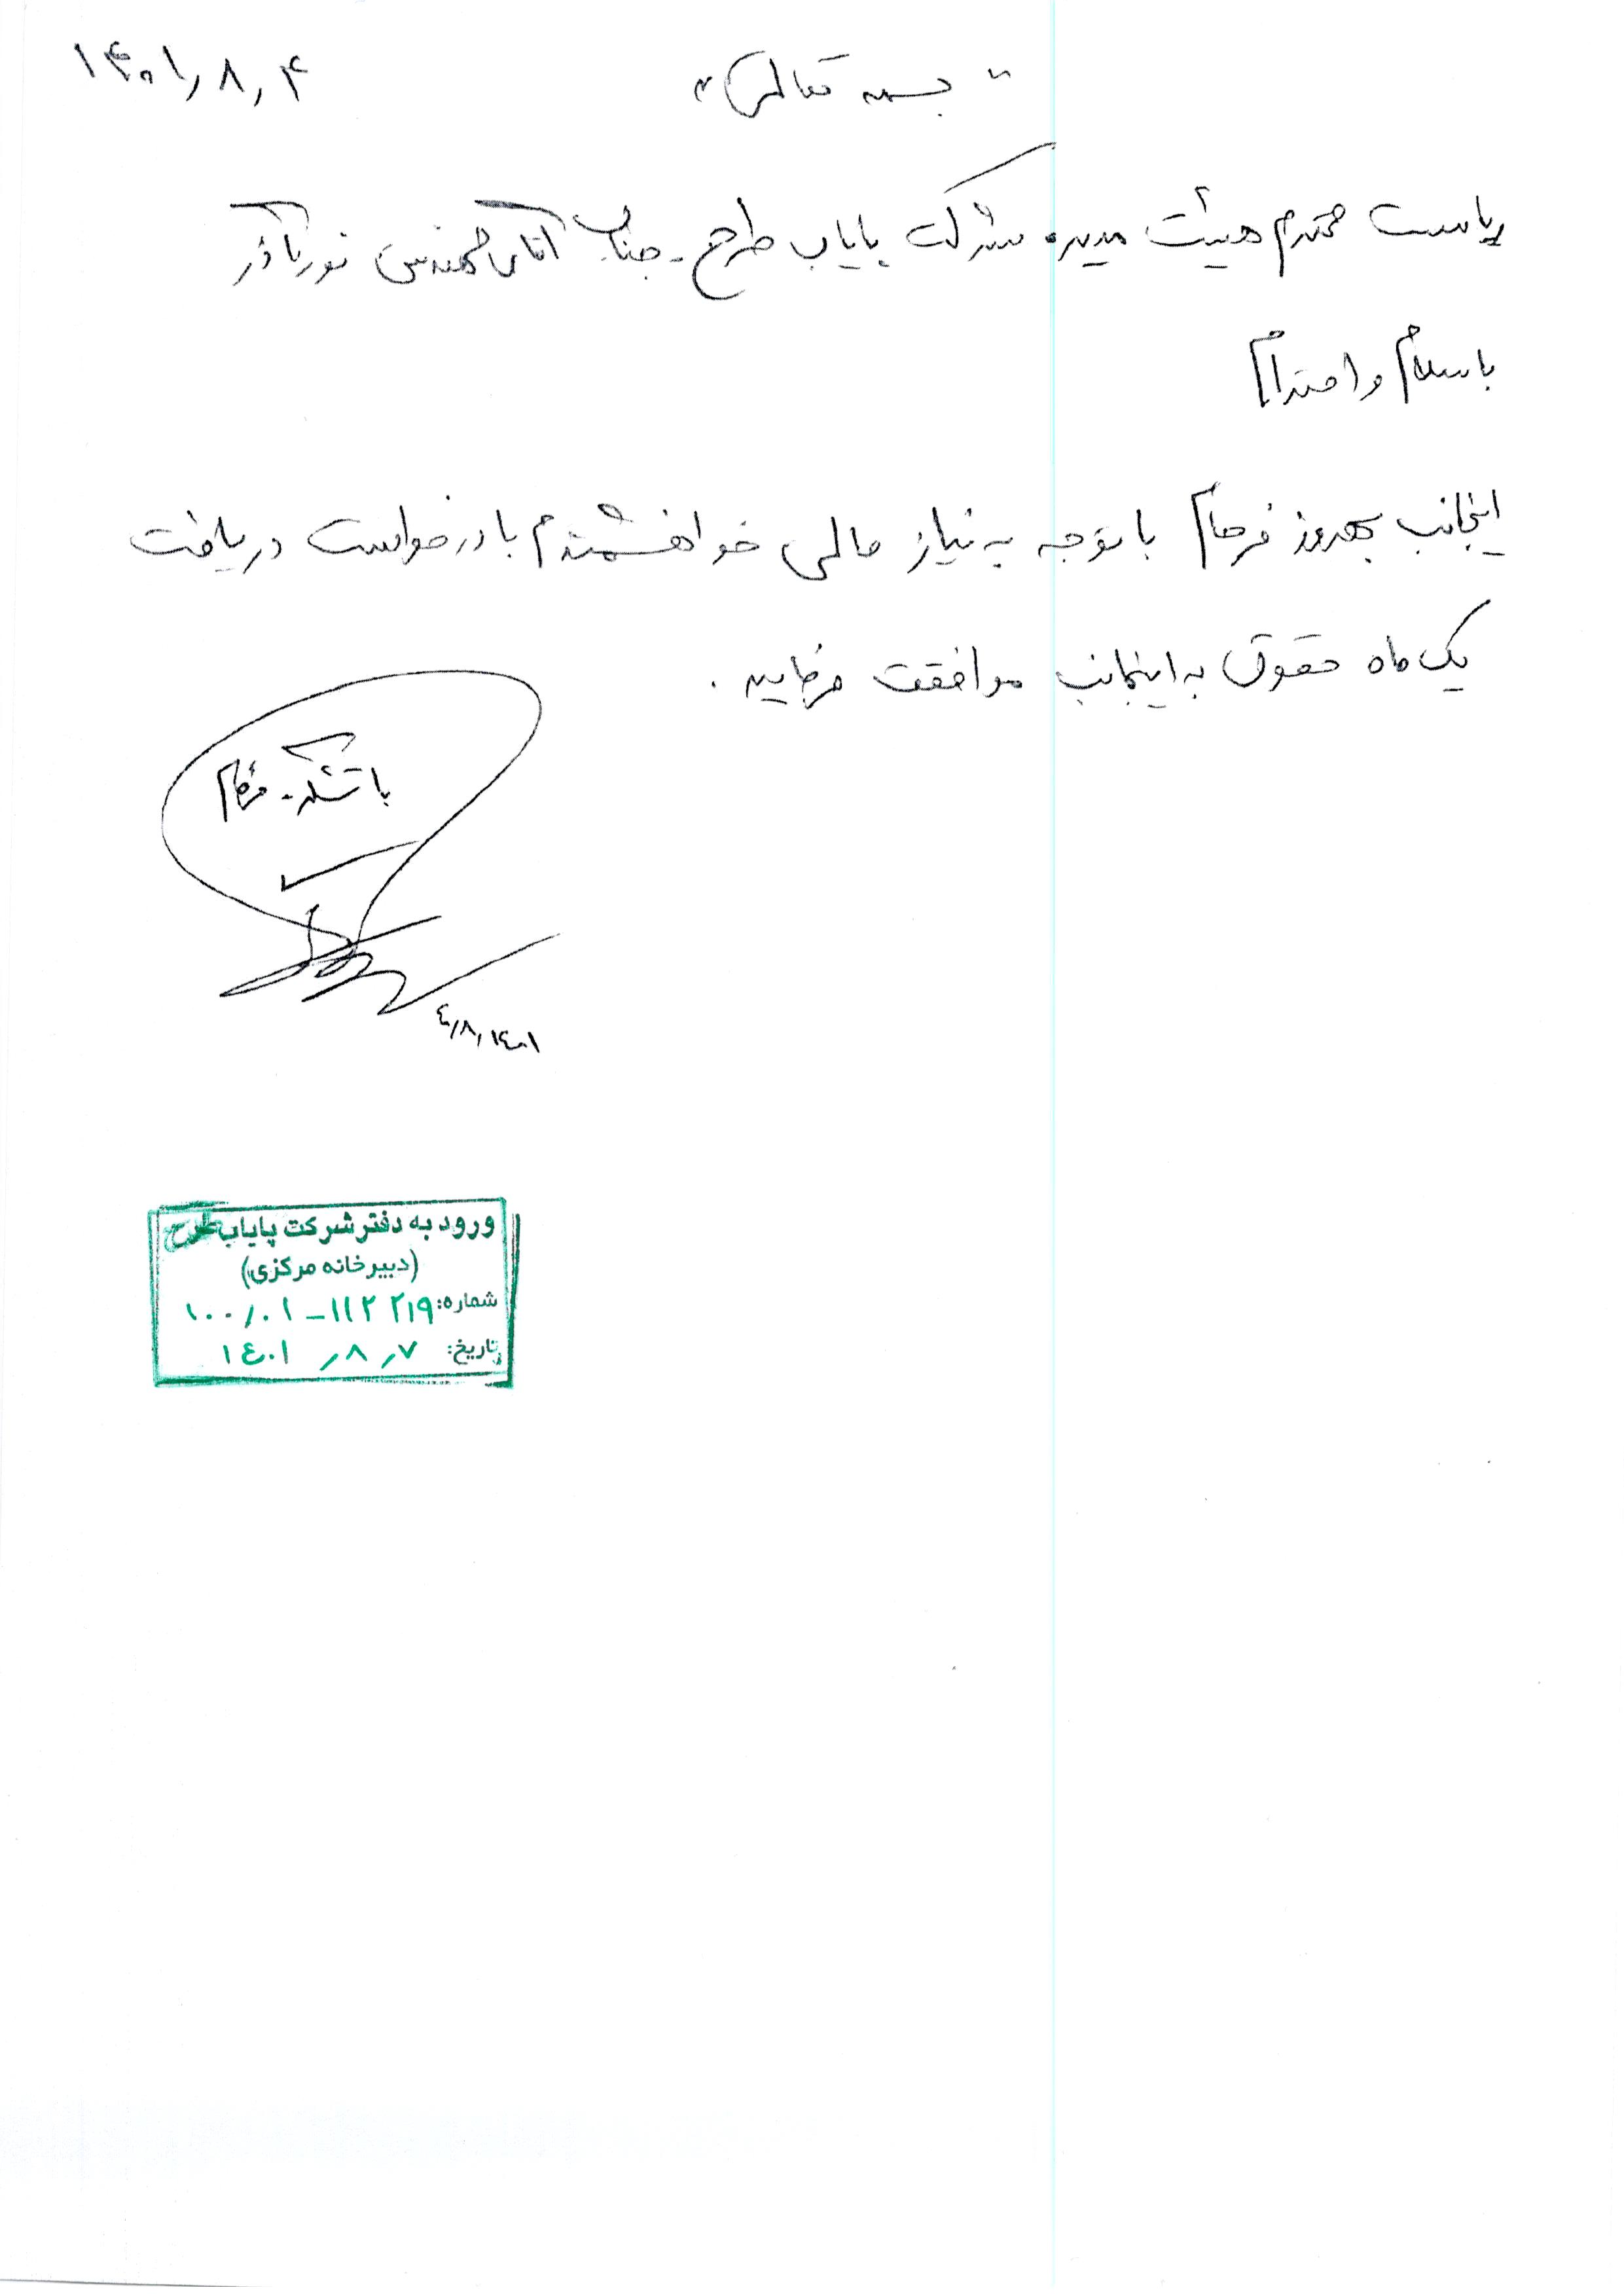 ۱۴۰۱/۸/۴
"بسمه تعالی"
ریاست محترم هیئت مدیره شرکت پایاب طرح - جناب آقای مهندس
با سلام و احترام
اینجانب بهروز فرهام با توجه به نیاز مالی خواهشمندم با درخواست دریافت
یک ماه حقوق به اینجانب موافقت فرمایید.
با تشکر - فرهام
۱۴۰۱/۸/۴
ورود به دفتر شرکت پایاب طرح
(دبیرخانه مرکزی)
شماره: ۱۰۰/۰۱-۱۱۲۲۱۹
تاریخ: ۱۴۰۱/۸/۷